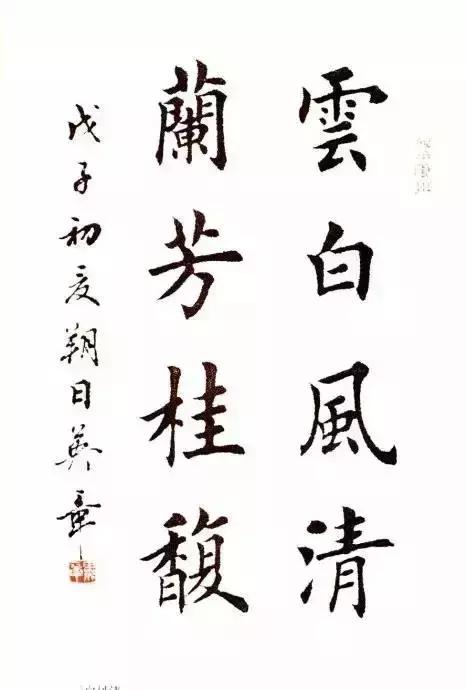 雲白風清
蘭芳桂馥
戊子初夏朔日英章